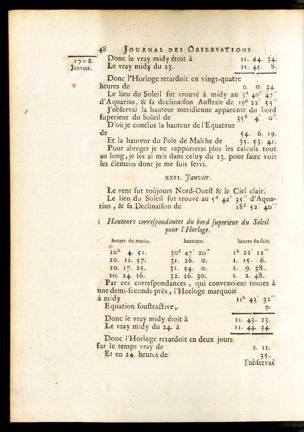 48 JOURNAL DES OBSERVATIONS
1708.
Janvier.
Donc le vray midy étoit à 11. 44. 34.
Le vray midy du 23. 11. 45. 8.
Donc l'Horloge retardoit en vingt-quatre
heures de 0. 0. 34.
Le lieu du Soleil fut trouvé à midy au 3d 40' 47"
d'Aquarius, & sa declinaison Australe de 19d 22' 55"
J'observai la hauteur meridienne apparente du bord
superieur du Soleil de 35d 4' 0"
D'où je conclus la hauteur de l'Equateur
de 54. 6. 19.
Et la hauteur du Pole de Malthe de 35. 53. 41.
Pour abreger je ne rapporterai plus les calculs tout
au long, je les ai mis dans celuy du 23. pour faire voir
les élemens dont je me suis servi.
XXVI. Janvier.
Le vent fut toûjours Nord-Ouest & le Ciel clair.
Le lieu du Soleil fut trouvé au 5d 42' 35" d'Aqua-
rius, & sa Declinaison de
Hauteurs correspondantes du bord superieur du Soleil
pour l'Horloge.
heures du matin. hauteurs. heures du soir.
10h 4. 51. 30d 47' 20" 1h 22' 12"
10. 11. 57. 31. 26. 0. 1. 15. 6.
10. 17. 25. 31. 54. 0. 1. 9. 38.
10. 24. 16. 32. 26. 30. 1. 2. 48.
Par ces correspondances, qui convenoient toutes à
une demi-seconde près, l'Horloge marquoit
à midy 11h 43' 32"
Equation soustractive, 9.
Donc le vray midy étoit à 11. 43. 23.
Le vray midy du 24. à 11. 44. 34.
Donc l'Horloge retardoit en deux jours
sur le temps vray de 2. 11.
Et en 24. heures de 35.
J'observai